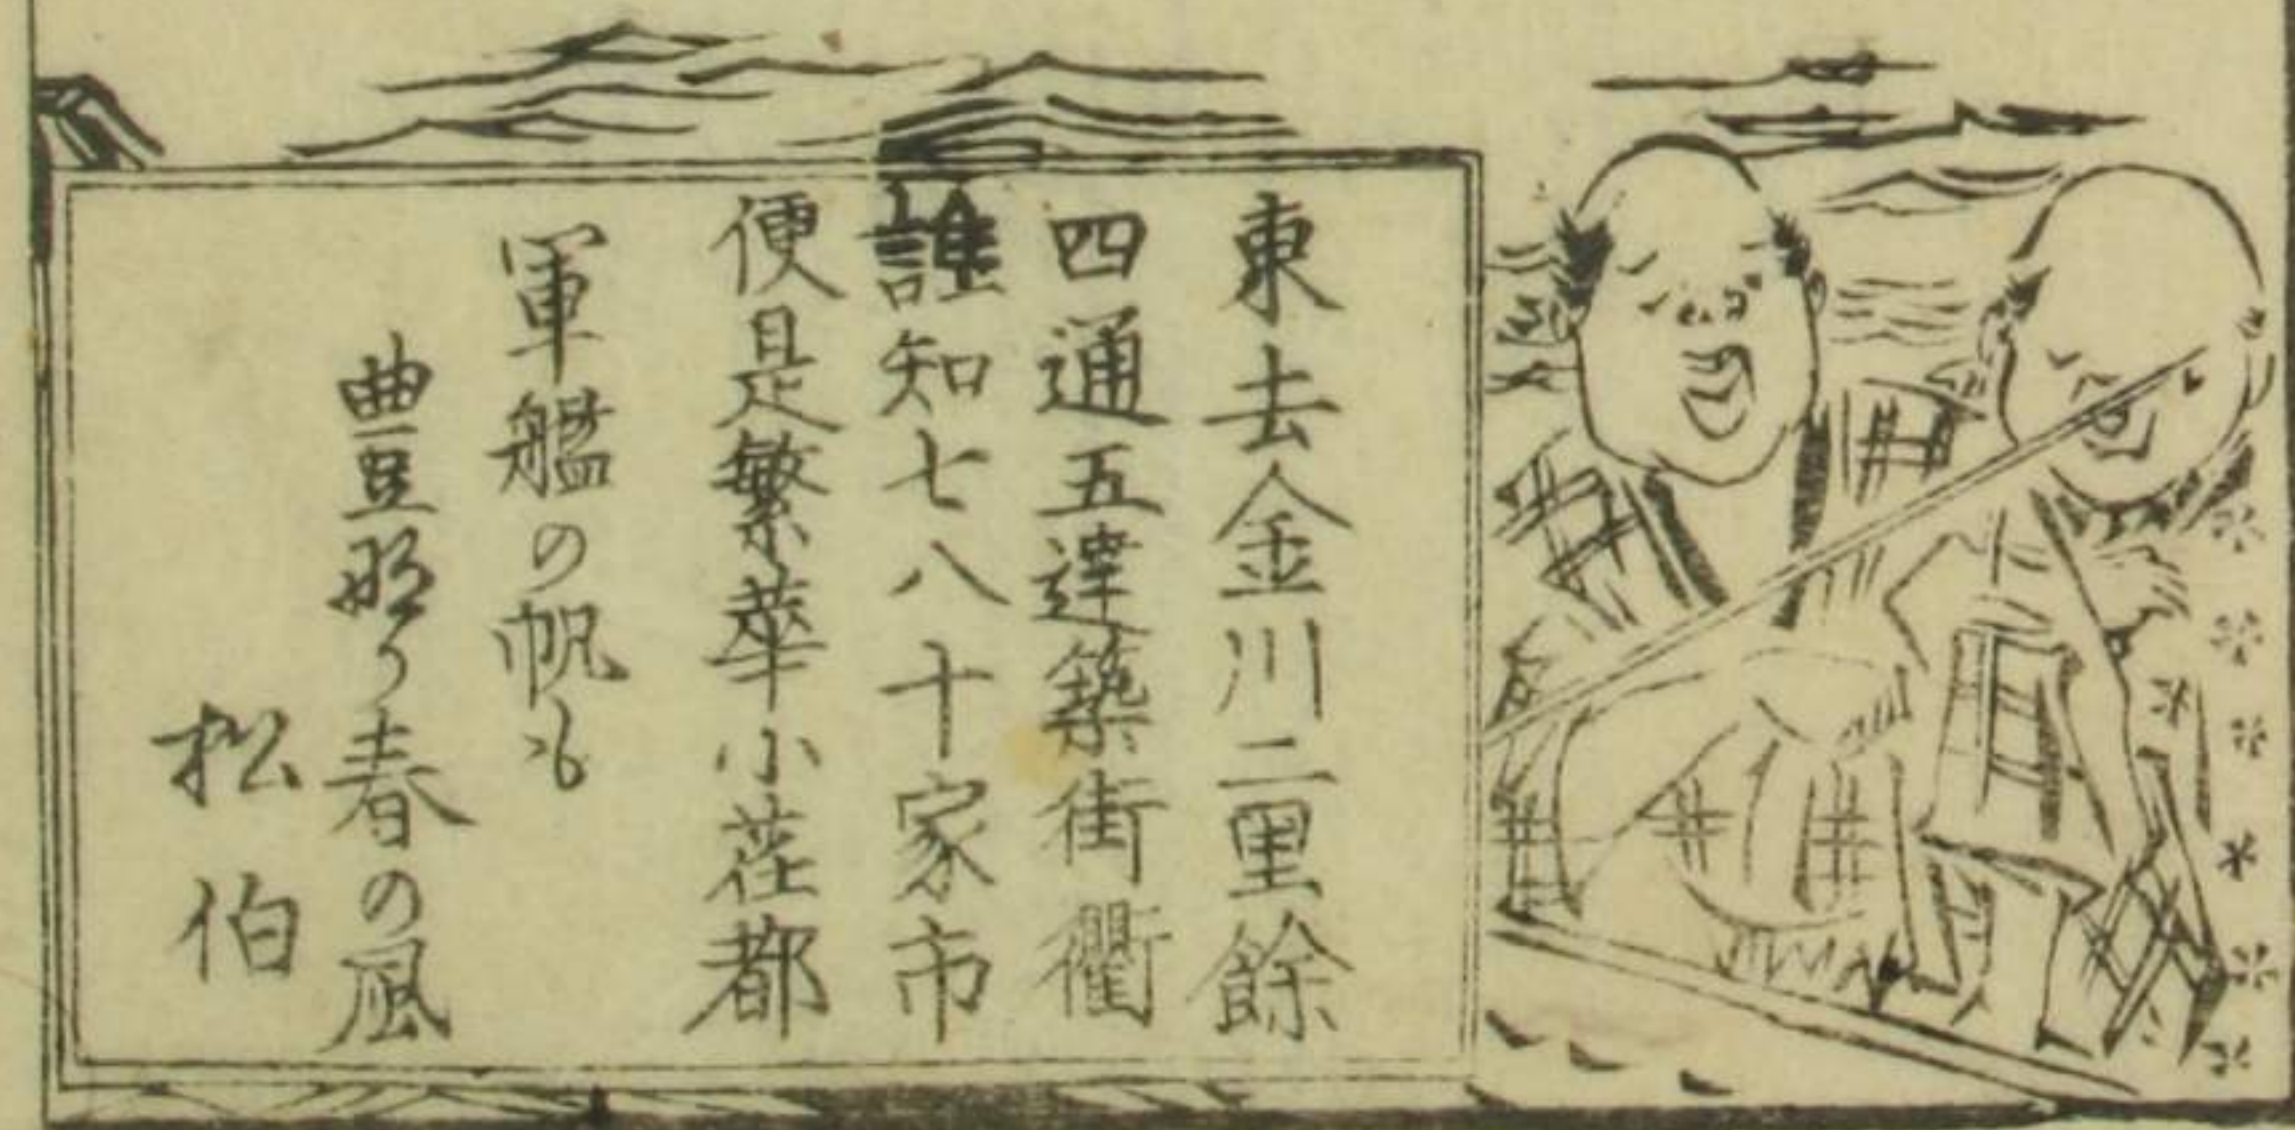 東去金川二里餘
四通五達築街衢
誰知七八十家市
便是繁華小荏都
軍艦の帆も
豊那り春の風
松伯